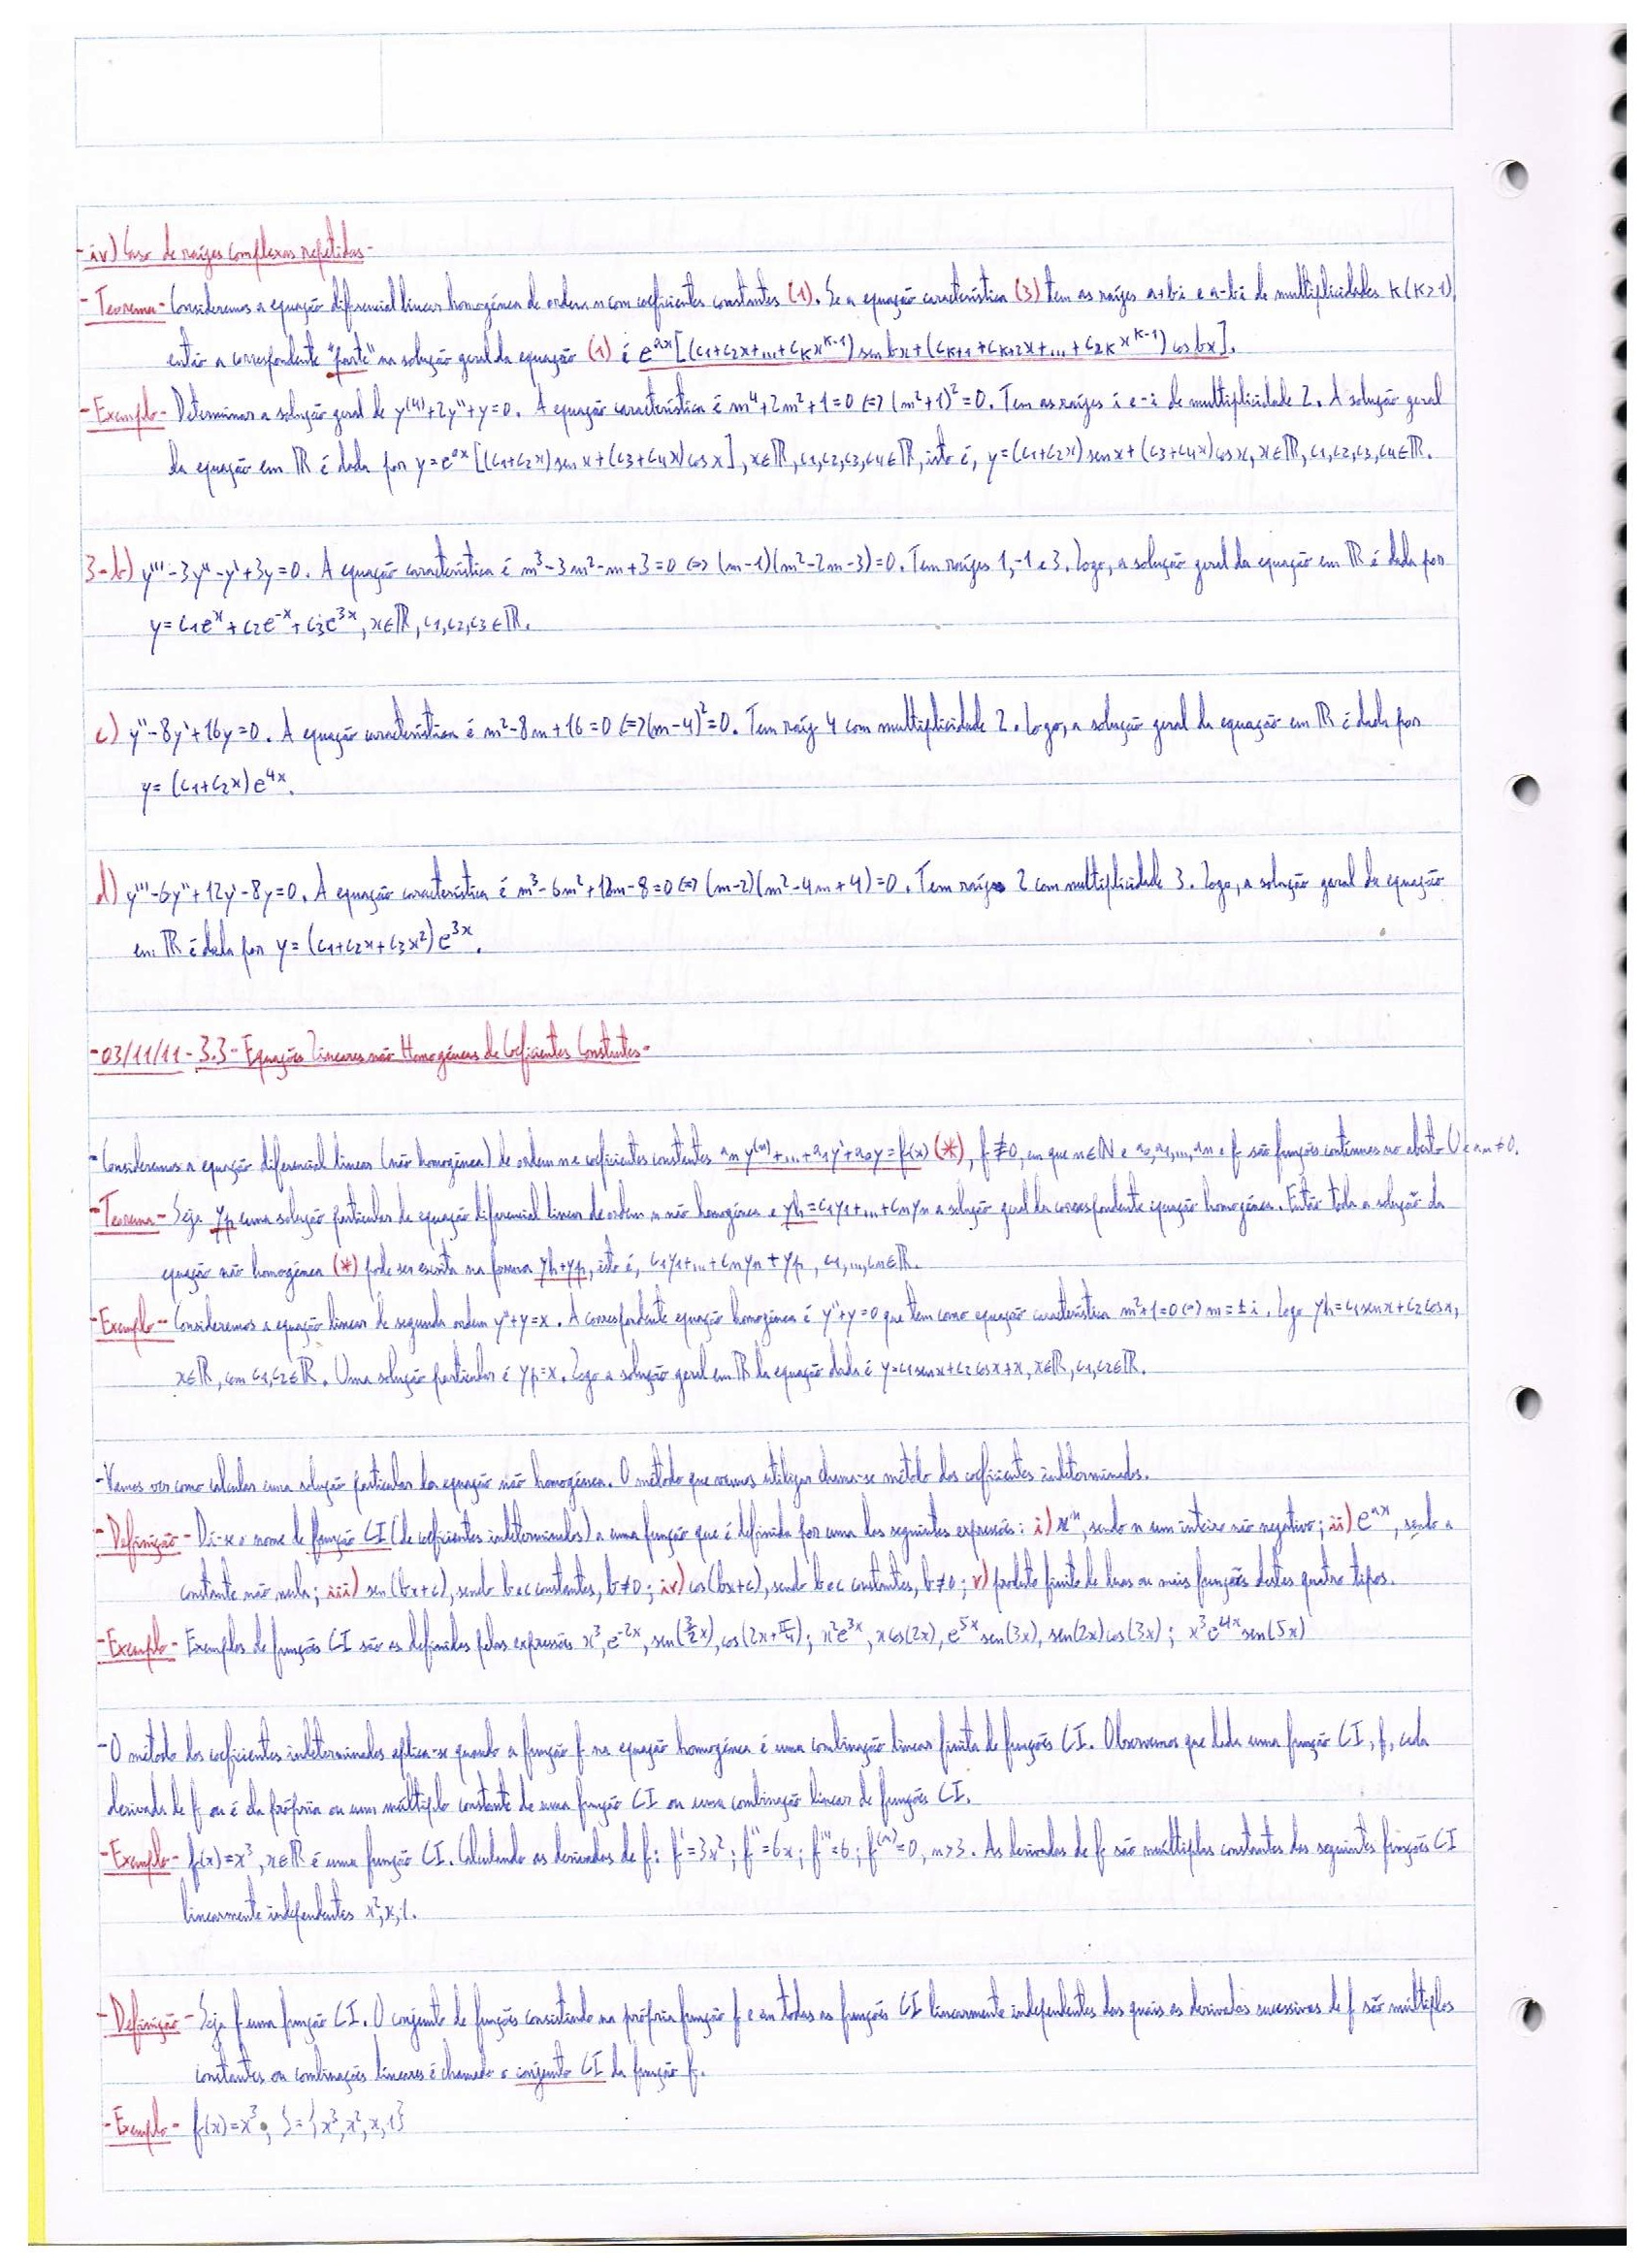 -iv) Caso de raízes complexas repetidas-
-Teorema- Consideremos a equação diferencial linear homogénea de ordem n com coeficientes constantes (1). Se a equação característica (3) tem as raízes a+bi e a-bi de multiplicidades K (K>1),
então a correspondente "parte" na solução geral da equação (1) é e^{ax}[(c1+c2x+...+cKx^{K-1}) sen bx+(cK+1+cK+2x+...+c2Kx^{K-1}) cos bx].
-Exemplo- Determinar a solução geral de y^{(4)}+2y''+y=0. A equação característica é m^4+2m^2+1=0 <=> (m^2+1)^2=0. Tem as raízes i e -i de multiplicidade 2. A solução geral
da equação em ℝ é dada por y=e^{0x}[(c1+c2x) sen x+(c3+c4x) cos x], x∈ℝ, c1,c2,c3,c4∈ℝ, isto é, y=(c1+c2x) sen x+(c3+c4x) cos x, x∈ℝ, c1,c2,c3,c4∈ℝ.
3-b) y'''-3y''-y'+3y=0. A equação característica é m^3-3m^2-m+3=0 <=> (m-1)(m^2-2m-3)=0. Tem raízes 1,-1 e 3. Logo, a solução geral da equação em ℝ é dada por
y=c1e^x+c2e^{-x}+c3e^{3x}, x∈ℝ, c1,c2,c3∈ℝ.
c) y''-8y'+16y=0. A equação característica é m^2-8m+16=0 <=> (m-4)^2=0. Tem raíz 4 com multiplicidade 2. Logo, a solução geral da equação em ℝ é dada por
y=(c1+c2x)e^{4x}.
d) y'''-6y''+12y'-8y=0. A equação característica é m^3-6m^2+12m-8=0 <=> (m-2)(m^2-4m+4)=0. Tem raízes 2 com multiplicidade 3. Logo, a solução geral da equação
em ℝ é dada por y=(c1+c2x+c3x^2)e^{3x}.
-03/11/11-3.3-Equações Lineares não Homogéneas de Coeficientes Constantes-
-Consideremos a equação diferencial linear (não homogénea) de ordem n e coeficientes constantes an y^{(n)}+...+a1y'+a0y=f(x) (*), f≢0, em que n∈ℕ e a0,a1,...,an e f são funções contínuas no aberto U e an≠0.
-Teorema- Seja yp uma solução particular da equação diferencial linear de ordem n não homogénea e yh=c1y1+...+cnyn a solução geral da correspondente equação homogénea. Então toda a solução da
equação não homogénea (*) pode ser escrita na forma yh+yp, isto é, c1y1+...+cnyn+yp, c1,...,cn∈ℝ.
-Exemplo- Consideremos a equação linear de segunda ordem y''+y=x. A correspondente equação homogénea é y''+y=0 que tem como equação característica m^2+1=0 <=> m=±i. Logo yh=c1senx+c2cosx,
x∈ℝ, com c1,c2∈ℝ. Uma solução particular é yp=x. Logo a solução geral em ℝ da equação dada é y=c1senx+c2cosx+x, x∈ℝ, c1,c2∈ℝ.
-Vamos ver como calcular uma solução particular da equação não homogénea. O método que vamos utilizar chama-se método dos coeficientes indeterminados.
-Definição- Dá-se o nome de função CI (de coeficientes indeterminados) a uma função que é definida por uma das seguintes expressões: i) x^n, sendo n um inteiro não negativo; ii) e^{ax}, sendo a
constante não nula; iii) sen(bx+c), sendo b e c constantes, b≠0; iv) cos(bx+c), sendo b e c constantes, b≠0; v) produto finito de duas ou mais funções destes quatro tipos.
-Exemplo- Exemplos de funções CI são as definidas pelas expressões x^3, e^{-2x}, sen(3/2x), cos(2x+π/4); x^2e^{3x}, xcos(2x), e^{5x}sen(3x), sen(2x)cos(3x); x^3e^{4x}sen(5x)
-O método dos coeficientes indeterminados aplica-se quando a função f na equação homogénea é uma combinação linear finita de funções CI. Observemos que dada uma função CI, f, cada
derivada de f ou é ela própria ou um múltiplo constante de uma função CI ou uma combinação linear de funções CI.
-Exemplo- f(x)=x^3, x∈ℝ é uma função CI. Calculando as derivadas de f: f'=3x^2; f''=6x; f'''=6; f^{(n)}=0, n>3. As derivadas de f são múltiplos constantes das seguintes funções CI
linearmente independentes x^2,x,1.
-Definição- Seja f uma função CI. O conjunto de funções consistindo na própria função f e em todas as funções CI linearmente independentes das quais as derivadas sucessivas de f são múltiplos
constantes ou combinações lineares é chamado o conjunto CI da função f.
-Exemplo- f(x)=x^3; S={x^3,x^2,x,1}